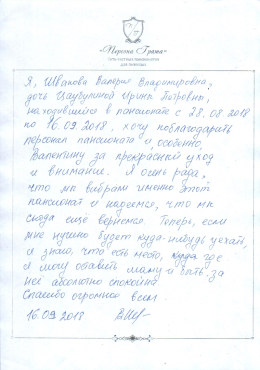 «Первый Гранж»
сеть частных пансионатов
для пожилых
Я, Иванова Валерия Владимировна,
дочь Цаубулиной Ирины Петровны,
находившейся в пансионате с 28.08.2018
по 16.09.2018, хочу поблагодарить
персонал пансионата и особенно
Валентину за прекрасный уход
и внимание. Я очень рада,
что мы выбрали именно этот
пансионат и надеемся, что мы
сюда еще вернемся. Теперь, если
мне нужно будет куда-нибудь уехать,
я знаю, что есть место, где
я могу оставить маму и быть за
неё абсолютно спокойна.
Спасибо огромное всем.
16.09.2018